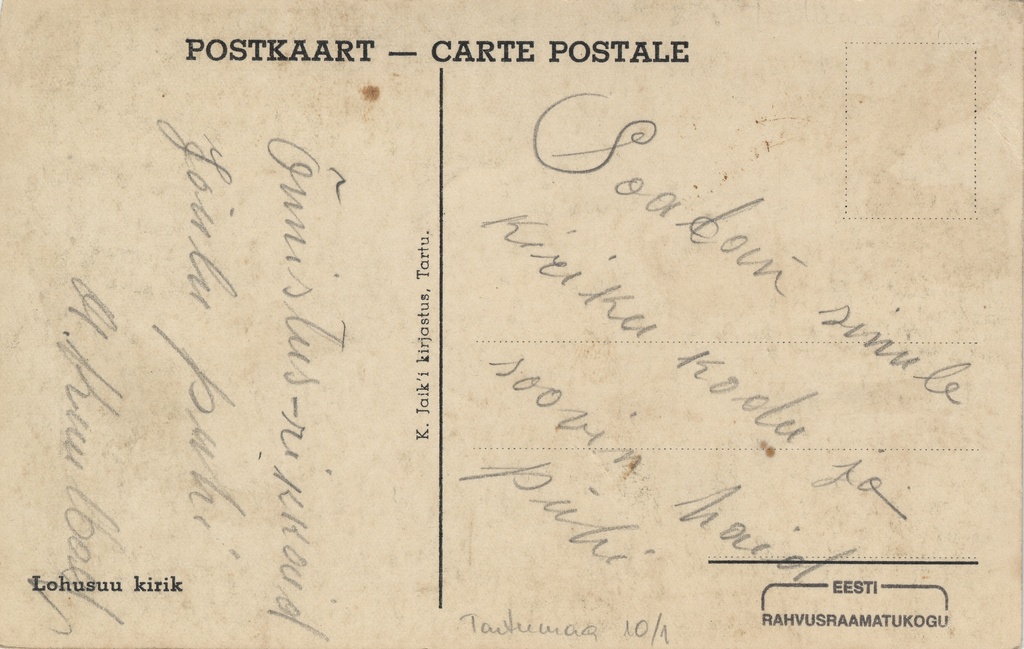 POSTKAART — CARTE POSTALE
Õnnistus-rikkaid
Jõulu pühi
K. Jaik'i kirjastus, Tartu.
Saadan sinule
kiriku kodu ja
soovin haid
pühi
Lohusuu kirik
Tartumaa 10/1
EESTI
RAHVUSRAAMATUKOGU